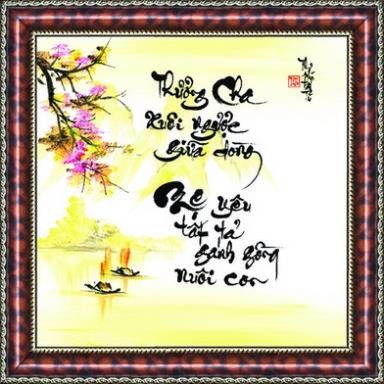 Thương Cha
xuôi ngược
giữa dòng
Mẹ yêu
tất tả
gánh gồng
nuôi con